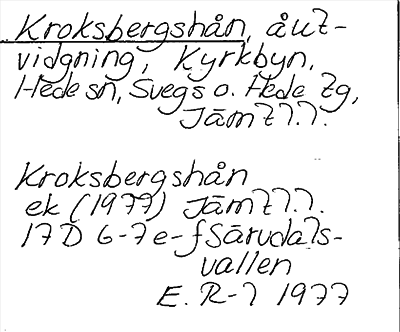 Kroksbergshån, åut-
vidgning, Kyrkbyn,
Hede sn, Svegs o. Hede tg,
Jämtl.
Kroksbergshån
ek (1977) Jämtl.
17D 6-7e-f Särvdals-
vallen
E. R-l 1977